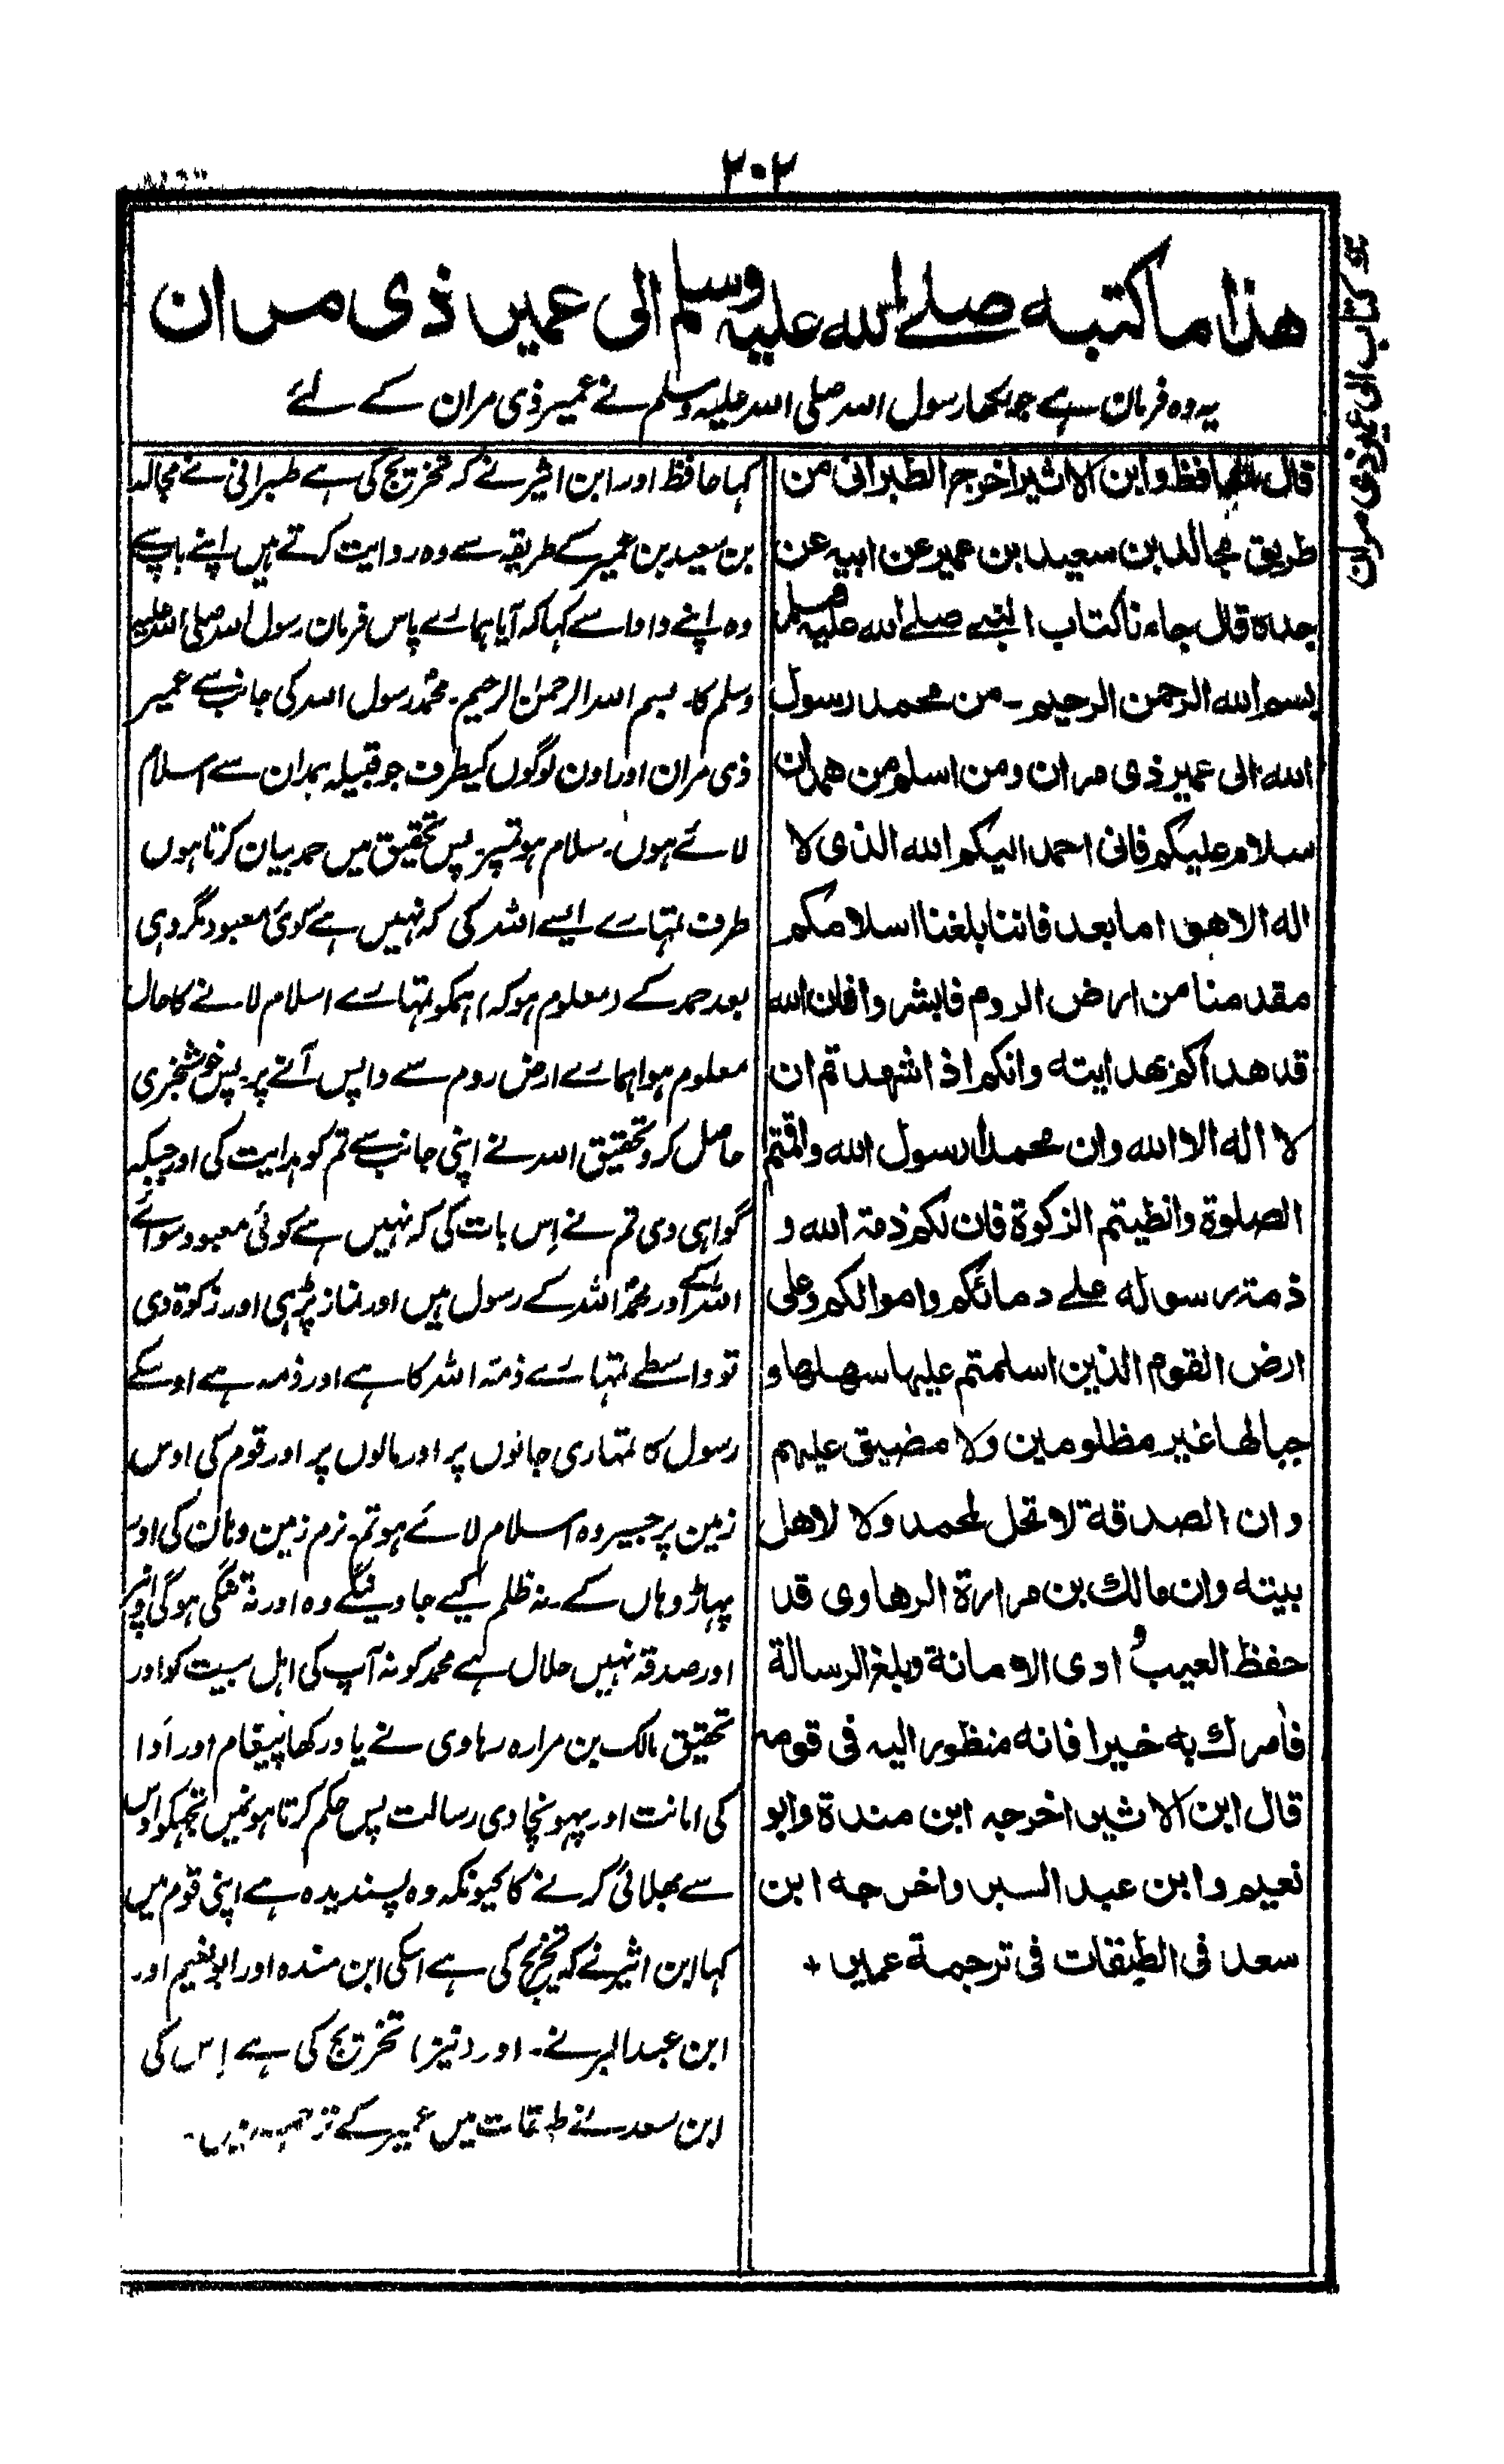 ٢٠٢
هذا ما كتبه صلے الله عليه وسلم الى عمير ذى مران
یہ وہ فرمان ہے جو لکھا رسول اللہ صلی اللہ علیہ وسلم نے عمیر ذی مران کے لئے
كتاب الى عمير ذى مران
قال الحافظ وابن الاثير اخرجه الطبرانى من
طريق مجالد بن سعيد ابن عمير عن ابيه عن
جده قال جاءنا كتاب النبے صلے الله عليه وسلم
بسم الله الرحمن الرحيم - من محمد رسول
الله الى عمير ذى مران ومن اسلم من همدان
سلام عليكم فانى احمد اليكم الله الذى لا
اله الا هو اما بعد فاننا بلغنا اسلامكم
مقدمنا من ارض الروم فابشروا فان الله
قد هداكم بهدايته وانكم اذا شهدتم ان
لا اله الا الله وان محمدا رسول الله واقمتم
الصلوة وانطيتم الزكوة فان لكم ذمة الله و
ذمة رسوله علے دمائكم واموالكم وعلى
ارض القوم الذين اسلمتم عليها سهلها و
جبالها غير مظلومين ولا مضيق عليهم
وان الصدقة لا تحل لمحمد ولا لاهل
بيته وان مالك بن مرارة الرهاوى قد
حفظ العيب وادى الامانة وبلغ الرسالة
فأمرك به خيرا فانه منظور اليه فى قومه
قال ابن الاثير اخرجه ابن مندة وابو
نعيم وابن عبد البر واخرجه ابن
سعد فى الطبقات فى ترجمة عمير +
کہا حافظ اور ابن اثیر نے کہ تخریج کی ہے طبرانی نے مجالد
بن سعید بن عمیر کے طریقہ سے وہ روایت کرتے ہیں اپنے باپ سے
وہ اپنے دادا سے کہا کہ آیا ہمارے پاس فرمان رسول اللہ صلی اللہ علیہ
وسلم کا۔ بسم اللہ الرحمٰن الرحیم۔ محمدؐ رسول اللہ کی جانب سے عمیر
ذی مران اور اون لوگوں کیطرف جو قبیلہ ہمدان سے اسلام
لائے ہوں۔ سلام ہو تمپر۔ پس تحقیق میں حمد بیان کرتا ہوں
طرف تمہارے ایسے اللہ کی کہ نہیں ہے کوئی معبود مگر وہی
بعد حمد کے (معلوم ہو کہ) ہمکو تمہارے اسلام لانے کا حال
معلوم ہوا ہمارے ارض روم سے واپس آنے پر۔ پس خوشخبری
حاصل کرو تحقیق اللہ نے اپنی جانب سے تم کو ہدایت کی اور جبکہ
گواہی دی تم نے اِس بات کی کہ نہیں ہے کوئی معبود سوائے
اللہ کے اور محمدؐ اللہ کے رسول ہیں اور نماز پڑہی اور زکوٰۃ دی
تو واسطے تمہارے ذمّہ اللہ کا ہے اور ذمہ ہے اوسکے
رسول کا تمہاری جانوں پر اور مالوں پر اور قوم کی اوس
زمین پر جسپر وہ اسلام لائے ہو تم۔ نرم زمین وہاں کی اور
پہاڑ وہاں کے۔ نہ ظلم کیے جاوینگے وہ اور نہ تنگی ہوگی اونپر
اور صدقہ نہیں حلال ہے محمد کو نہ آپ کی اہل بیت کو اور
تحقیق مالک بن مرارہ رہاوی نے یاد رکھا پیغام اور اَدا
کی امانت اور پہونچادی رسالت پس حکم کرتا ہوں میں تجہکو اوس
سے بھلائی کرنے کا کیونکہ وہ پسندیدہ ہے اپنی قوم میں
کہا ابن اثیر نے کہ تخریج کی ہے اسکی ابن مندہ اور ابو نعیم اور
ابن عبدالبر نے۔ اور (نیز) تخریج کی ہے اِس کی
ابن سعد نے طبقات میں عمیر کے ترجمہ میں۔